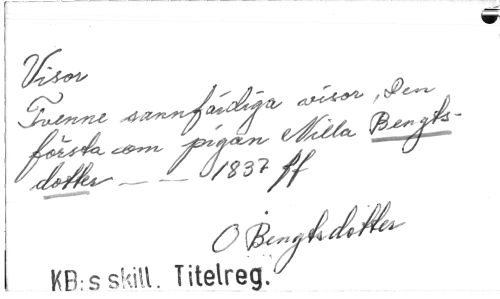 Visor
Tvenne sannfärdiga visor, Den
första om pigan Nilla Bengts-
dotter — — 1837 ff
O Bengtsdotter
KB:s skill. Titelreg.